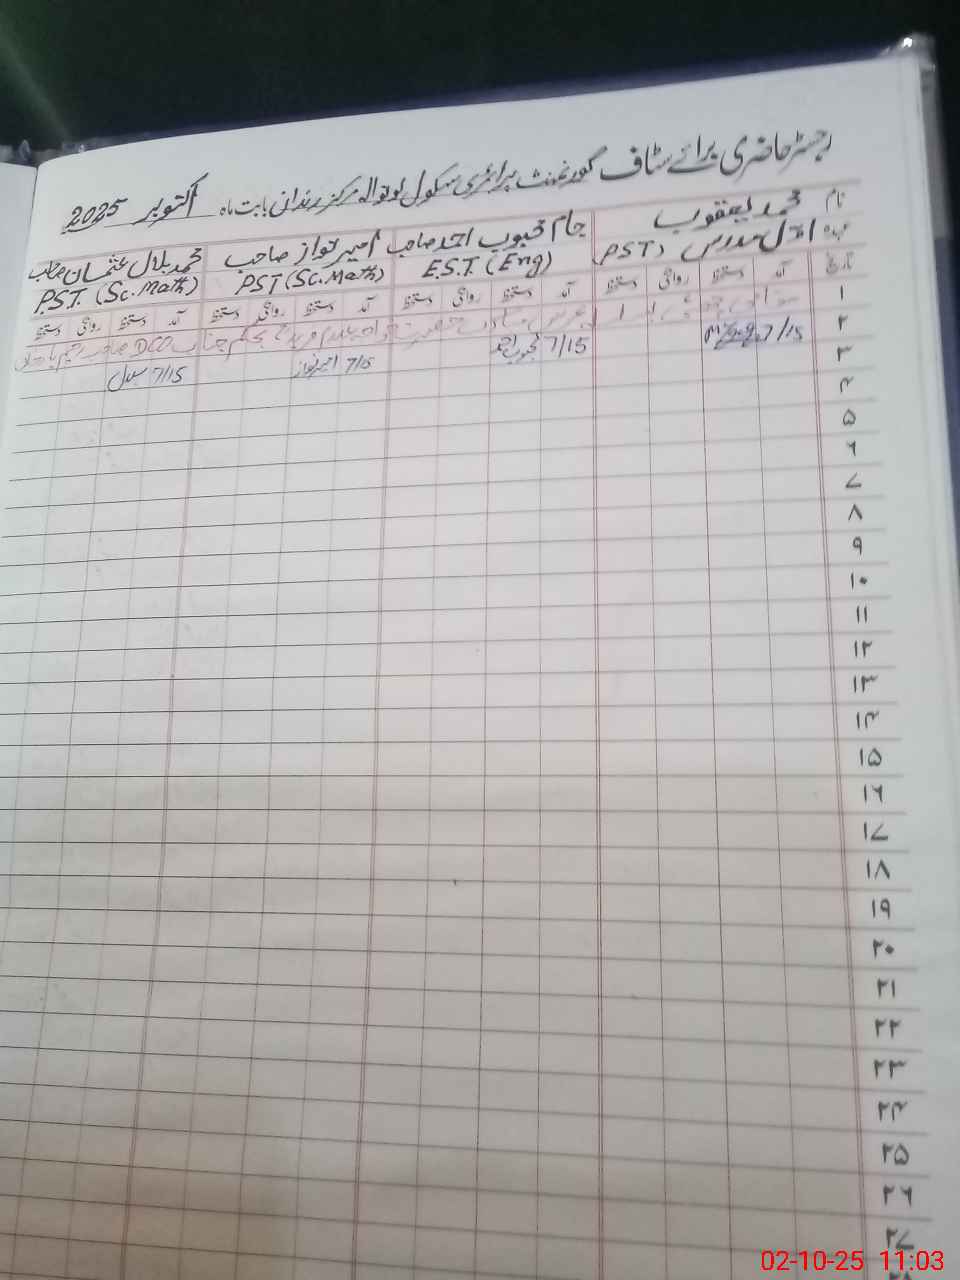 رجسٹر حاضری برائے سٹاف گورنمنٹ پرائمری سکول لوتوالہ مرکز رندانی بابت ماہ اکتوبر 2025
نام محمد یعقوب جام محبوب احمد صاحب امیر نواز صاحب محمد بلال عثمان صاحب
عہدہ اول مدرس (PST) E.S.T. (Eng) PST (Sc. Math) P.S.T. (Sc. Math)
تاریخ آمد دستخط روانگی دستخط آمد دستخط روانگی دستخط آمد دستخط روانگی دستخط آمد دستخط روانگی دستخط
۱
۲ 7/15 7/15 محبوب احمد 7/15 امیر نواز 7/15
۳
۴
۵
۶
۷
۸
۹
۱۰
۱۱
۱۲
۱۳
۱۴
۱۵
۱۶
۱۷
۱۸
۱۹
۲۰
۲۱
۲۲
۲۳
۲۴
۲۵
۲۶
۲۷
۲۸
02-10-25 11:03